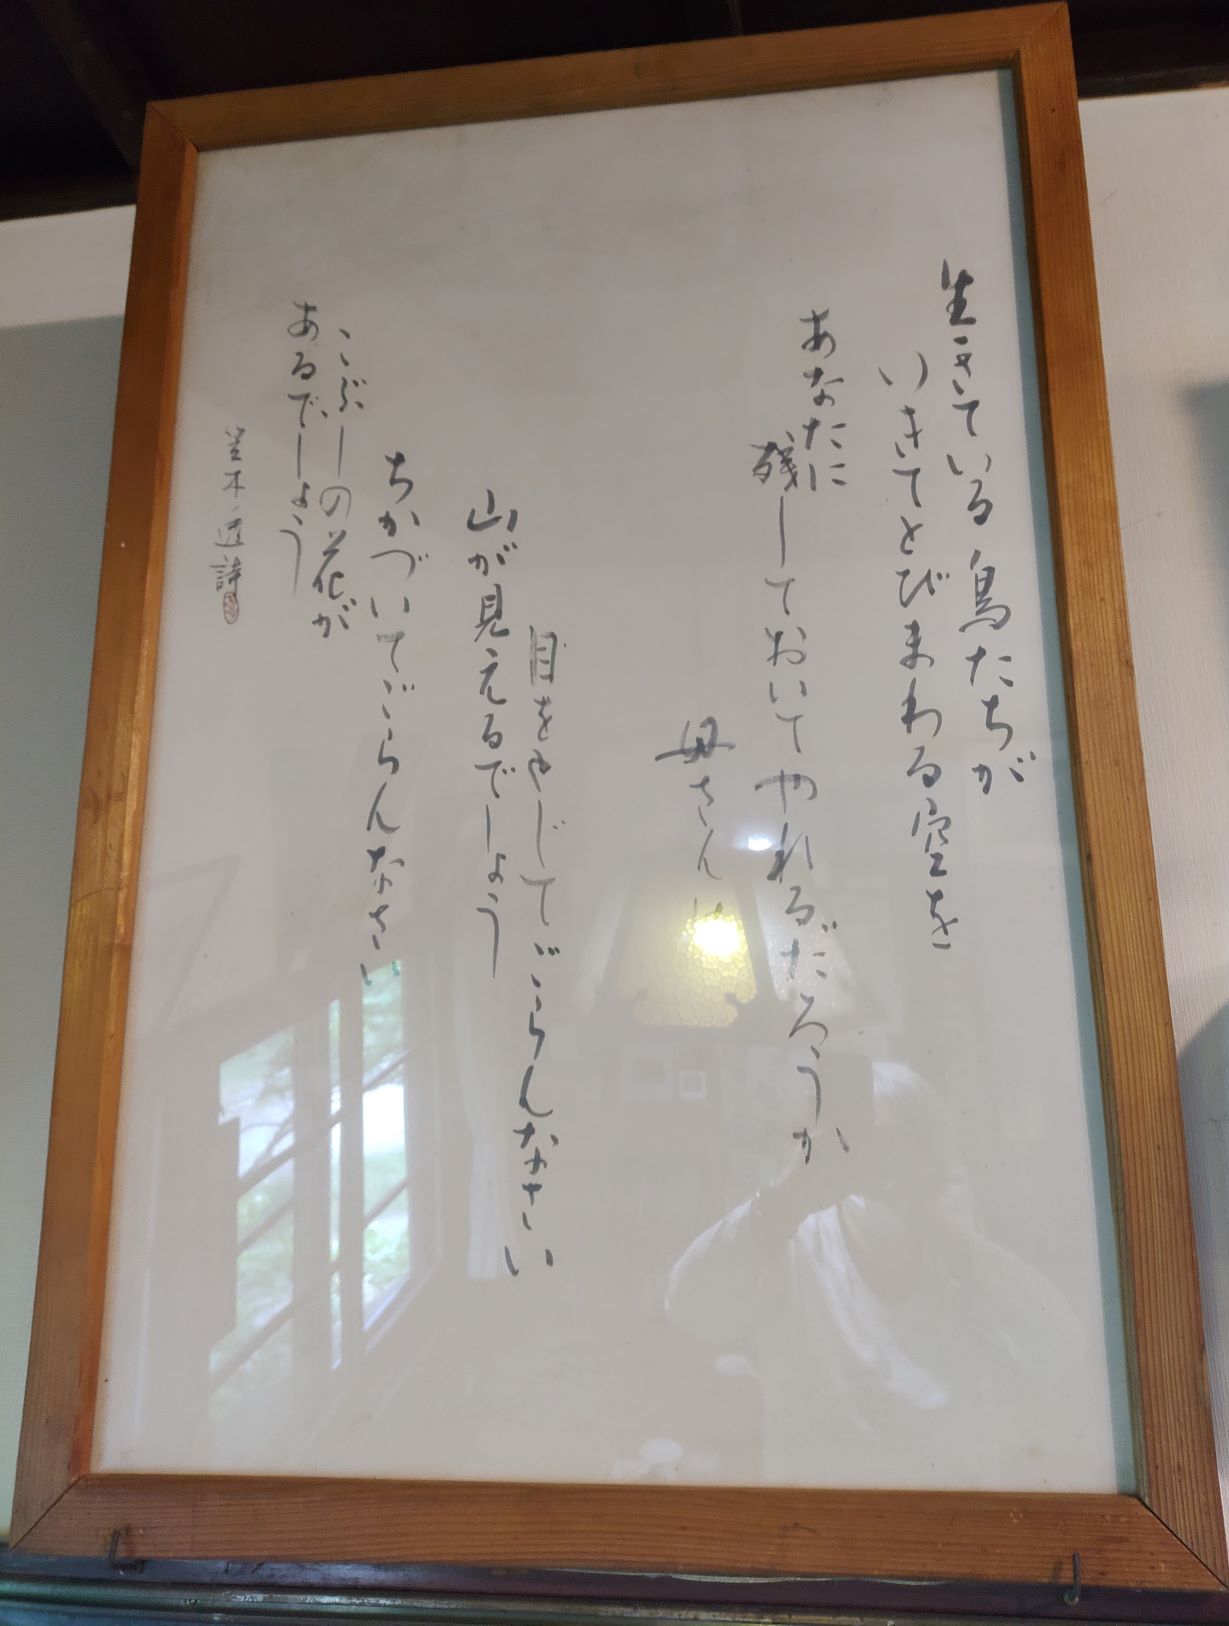 生きている鳥たちが
いきてとびまわる空を
あなたに
残しておいてやれるだろうか
母さんは
目をとじてごらんなさい
山が見えるでしょう
ちかづいてごらんなさい
こぶしの花が
あるでしょう
笠木透詩